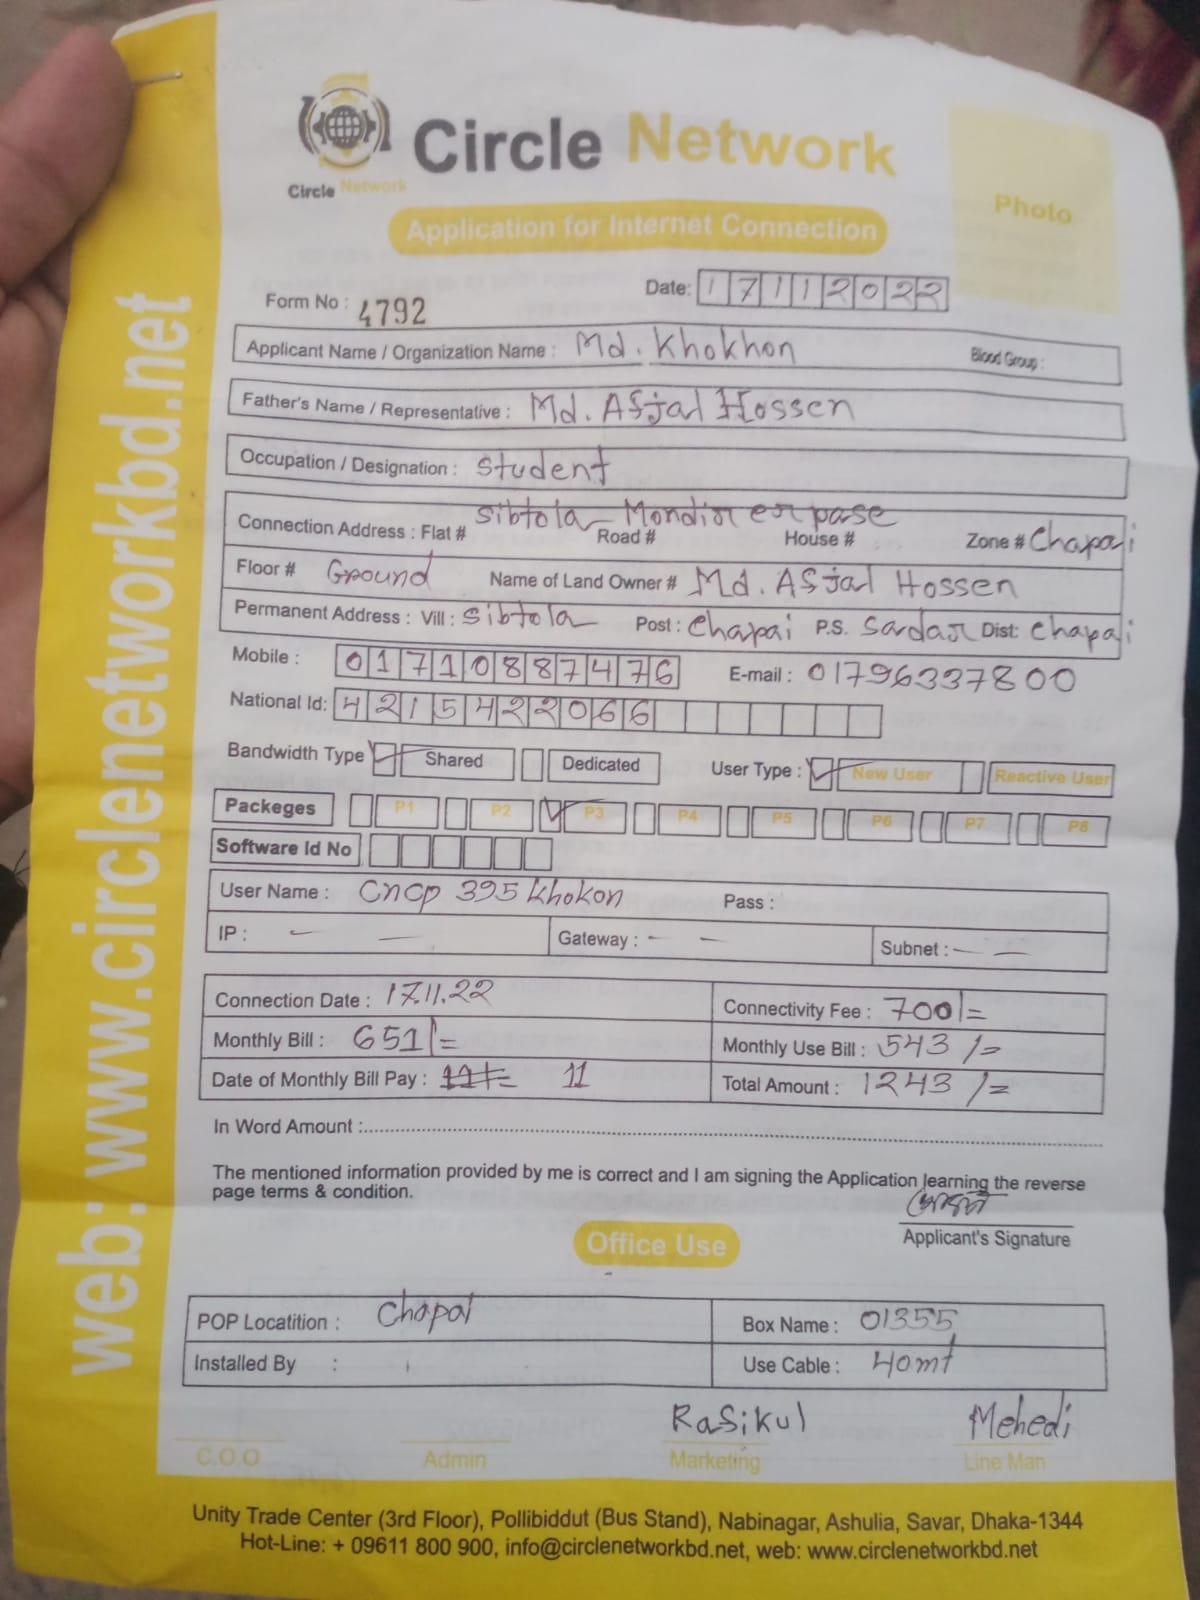 Circle Network
Circle Network
Application for Internet Connection
Photo
Form No : 4792
Date: 17112022
Applicant Name / Organization Name : Md. Khokhon Blood Group :
Father's Name / Representative : Md. Afjal Hossen
Occupation / Designation : Student
Sibtola Mondir er pase
Connection Address : Flat # Road # House # Zone # Chapai
Floor # Ground Name of Land Owner # Md. Afjal Hossen
Permanent Address : Vill : Sibtola Post : Chapai P.S. Sardar Dist: Chapai
Mobile : 01710887476 E-mail : 01796337800
National Id: 4215422066
Bandwidth Type Shared Dedicated User Type : New User Reactive User
Packeges P1 P2 P3 P4 P5 P6 P7 P8
Software Id No
User Name : Cncp 395 Khokon Pass :
IP : Gateway : Subnet :
Connection Date : 17.11.22 Connectivity Fee : 700/=
Monthly Bill : 651/= Monthly Use Bill : 543/=
Date of Monthly Bill Pay : 11 Total Amount : 1243/=
In Word Amount :
The mentioned information provided by me is correct and I am signing the Application learning the reverse
page terms & condition.
Applicant's Signature
Office Use
POP Locatition : Chapai Box Name : 01355
Installed By : Use Cable : 40mt
Rasikul Mehedi
C.O.O Admin Marketing Line Man
Unity Trade Center (3rd Floor), Pollibiddut (Bus Stand), Nabinagar, Ashulia, Savar, Dhaka-1344
Hot-Line: + 09611 800 900, info@circlenetworkbd.net, web: www.circlenetworkbd.net
web: www.circlenetworkbd.net